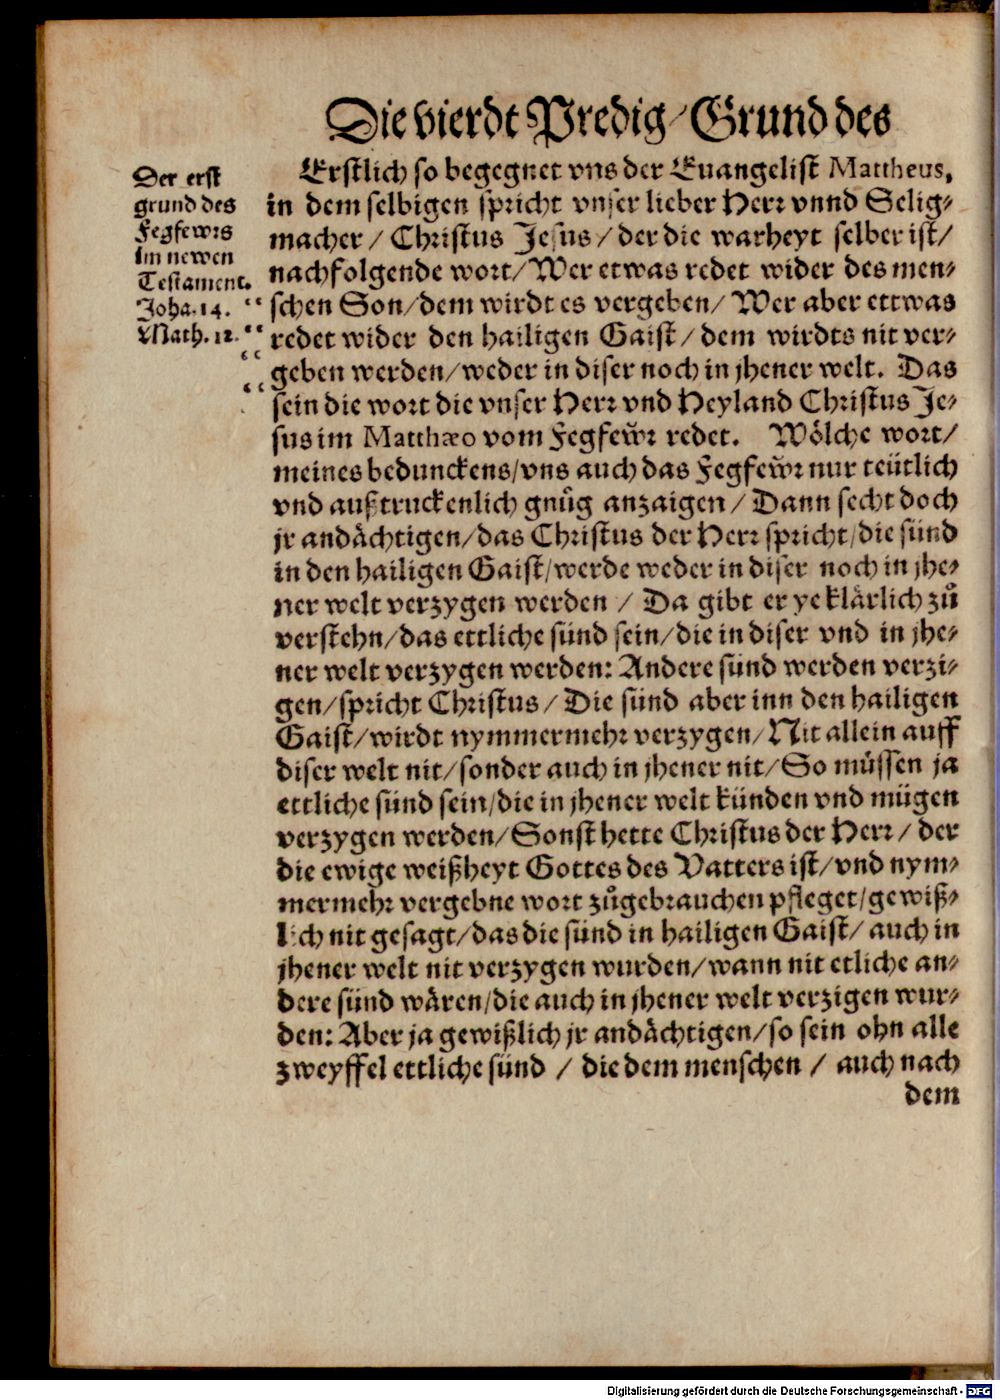 Die vierdt Predig/Grund des
Der erst
grund des
Fegfewrs
im newen
Testament.
Joha. 14.
Math. 12.
Erstlich so begegnet vns der Euangelist Mattheus,
in dem selbigen spricht vnser lieber Herr vnnd Selig-
macher / Christus Jesus / der die warheyt selber ist/
nachfolgende wort/ Wer etwas redet wider des men-
schen Son/dem wirdt es vergeben/ Wer aber ettwas
redet wider den hailigen Gaist / dem wirdts nit ver-
geben werden/weder in diser noch in jhener welt. Das
sein die wort die vnser Herr vnd Heyland Christus Je-
sus im Matthæo vom Fegfewͤr redet. Woͤlche wort/
meines bedunckens/vns auch das Fegfewͤr nur teütlich
vnd außtruckenlich gnuͦg anzaigen / Dann secht doch
jr andaͤchtigen/das Christus der Herr spricht/die sünd
in den hailigen Gaist/werde weder in diser noch in jhe-
ner welt verzygen werden / Da gibt er ye klaͤrlich zuͦ
verstehn/das ettliche sünd sein/die in diser vnd in jhe-
ner welt verzygen werden: Andere sünd werden verzi-
gen/spricht Christus / Die sünd aber inn den hailigen
Gaist/wirdt nymmermehr verzygen/ Nit allein auff
diser welt nit/sonder auch in jhener nit/ So müssen ja
ettliche sünd sein/die in jhener welt künden vnd mügen
verzygen werden/ Sonst hette Christus der Herr / der
die ewige weißheyt Gottes des Vatters ist/vnd nym-
mermehr vergebne wort zuͦgebrauchen pfleget/gewiß-
lich nit gesagt/das die sünd in hailigen Gaist/ auch in
jhener welt nit verzygen wurden/wann nit etliche an-
dere sünd waͤren/die auch in jhener welt verzigen wur-
den: Aber ja gewißlich jr andaͤchtigen/so sein ohn alle
zweyffel ettliche sünd / die dem menschen / auch nach
dem
Digitalisierung gefördert durch die Deutsche Forschungsgemeinschaft - DFG